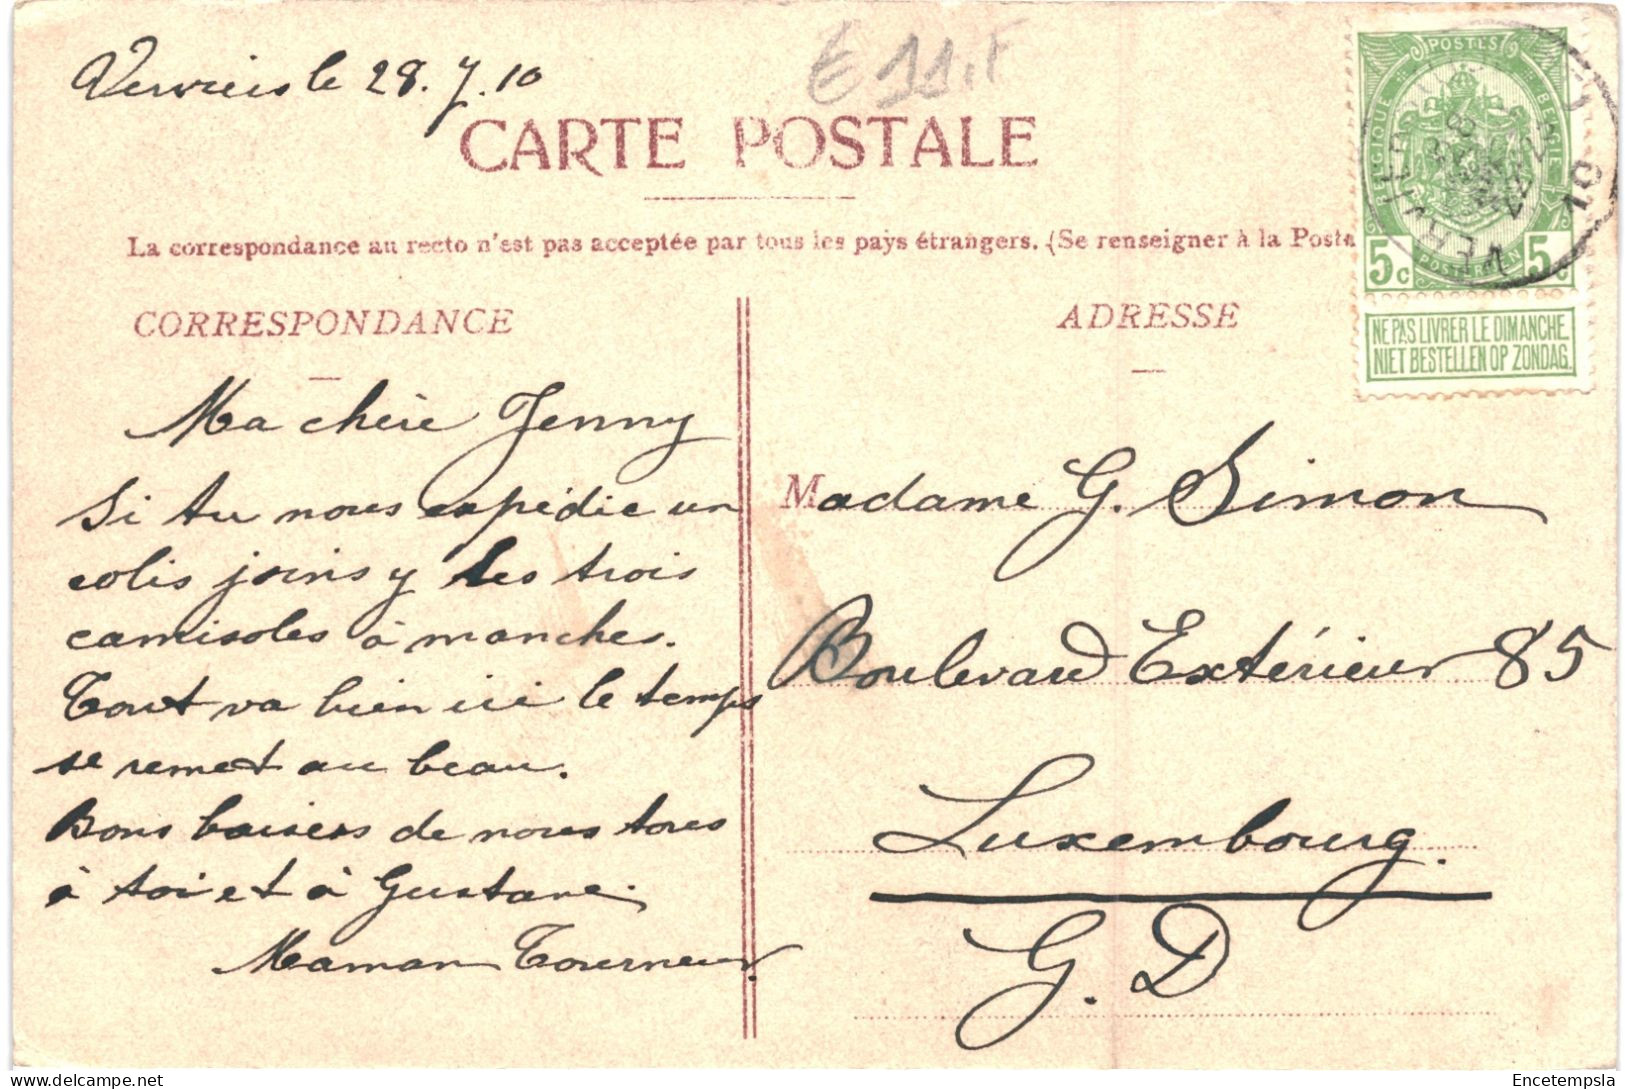 Verviers le 28.7.10
€ 11.
CARTE POSTALE
La correspondance au recto n'est pas acceptée par tous les pays étrangers. (Se renseigner à la Poste
CORRESPONDANCE
Ma chère Jenny
Si tu nous expédie un
colis joins y les trois
camisoles à manches.
Tout va bien ici le temps
se remet au beau.
Bons baisers de nous tous
à toi et à Gustave.
Maman Tourneur.
ADRESSE
Madame G. Simon
Boulevard Extérieur 85
Luxembourg.
G. D
POSTES
BELGIQUE
BELGIË
5c POSTERIJEN 5c
NE PAS LIVRER LE DIMANCHE.
NIET BESTELLEN OP ZONDAG.
VERVIERS
10
Encetempsla